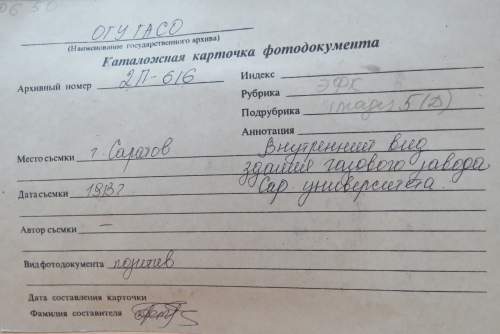 ОГУ ГАСО
(Наименование государственного архива)
Каталожная карточка фотодокумента
Архивный номер 2П-616
Индекс
Рубрика ЭФК
Подрубрика 5(Д)
Аннотация
Место съемки г. Саратов
Внутренний вид
здания газового завода
Сар университета.
Дата съемки 1913г
Автор съемки —
Вид фотодокумента позитив
Дата составления карточки
Фамилия составителя